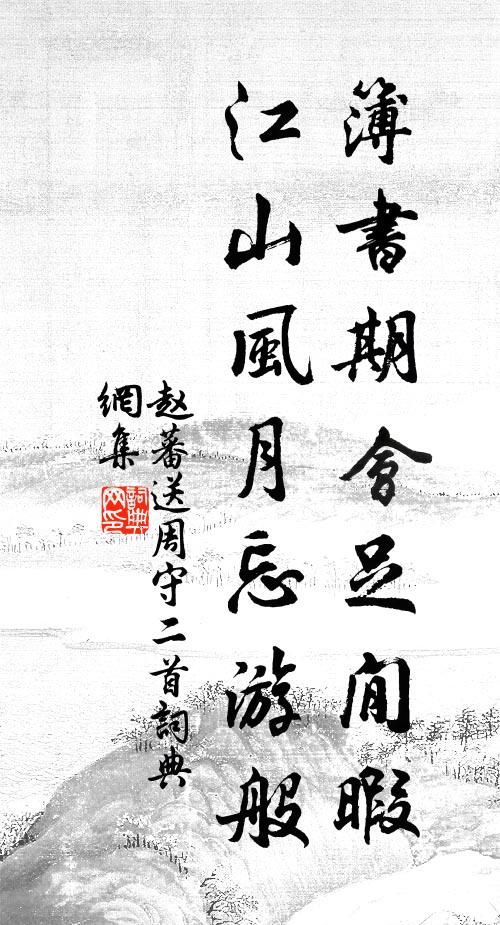 簿書期會足閒暇
江山風月忘游般
赵蕃送周守二首詞典
網集
詞典
网印